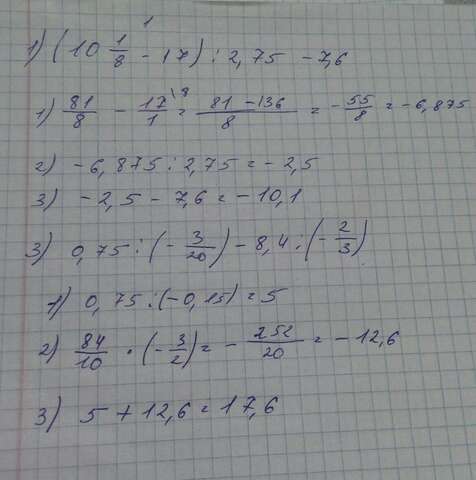 1
1) (10 1/8 - 17) : 2,75 - 7,6
1) 81/8 - 17\8/1 = 81 - 136/8 = - 55/8 = - 6,875
2) - 6,875 : 2,75 = - 2,5
3) - 2,5 - 7,6 = - 10,1
3) 0,75 : (- 3/20) - 8,4 : (- 2/3)
1) 0,75 : (-0,15) = 5
2) 84/10 · (- 3/2) = - 252/20 = - 12,6
3) 5 + 12,6 = 17,6